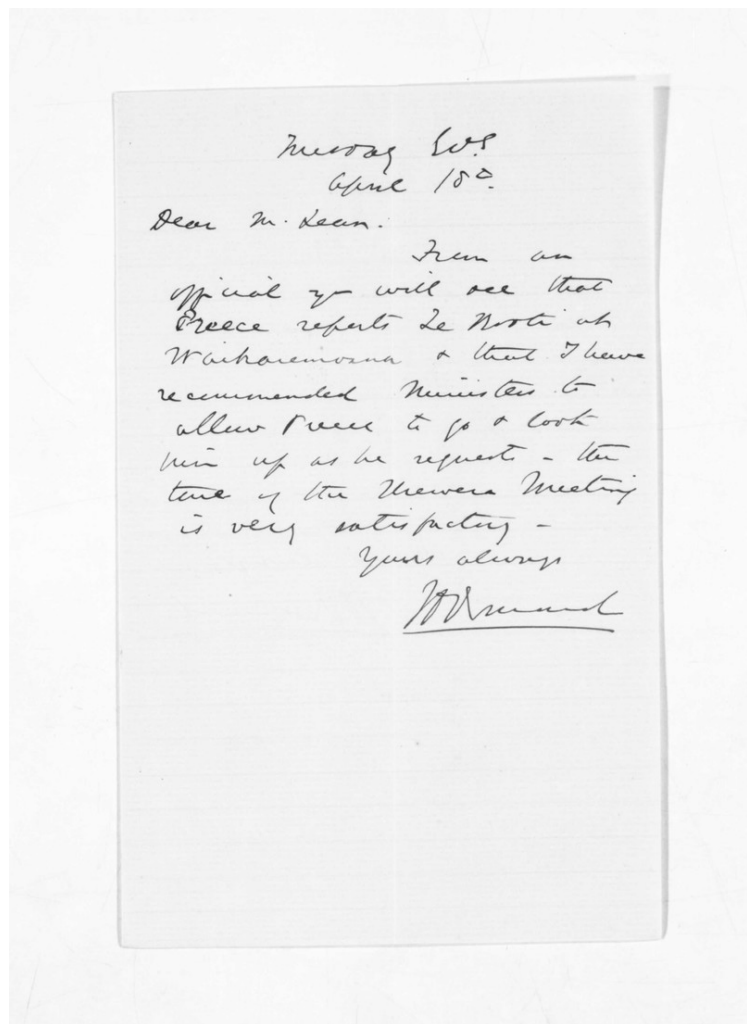 Tuesday Evg
April 18th.
Dear McLean.
From an
official you will see that
Preece reports Te Kooti at
Waikaremoana & that I have
recommended Ministers to
allow Preece to go & look
him up as he requests - the
tone of the Urewera Meeting
is very satisfactory -
Yours always
JDOrmond